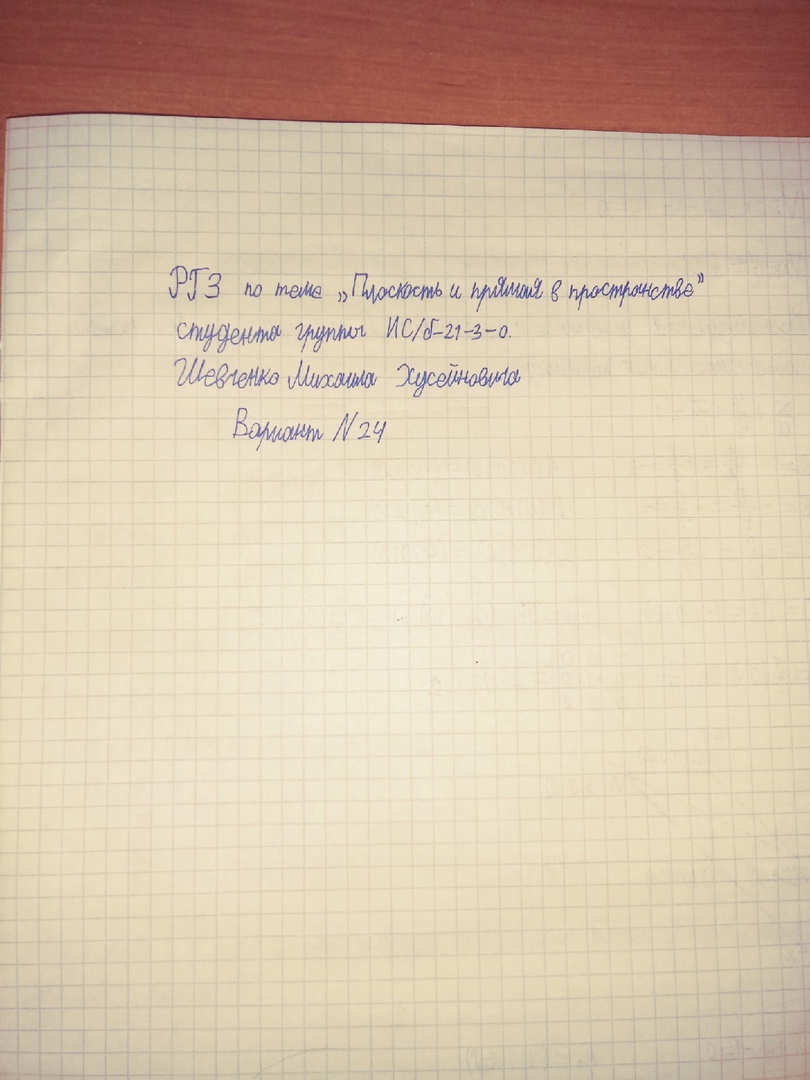 РГЗ по теме „Плоскость и прямая в пространстве”
студента группы ИС/б-21-3-о.
Шевченко Михаила Хусейновича
Вариант N 24